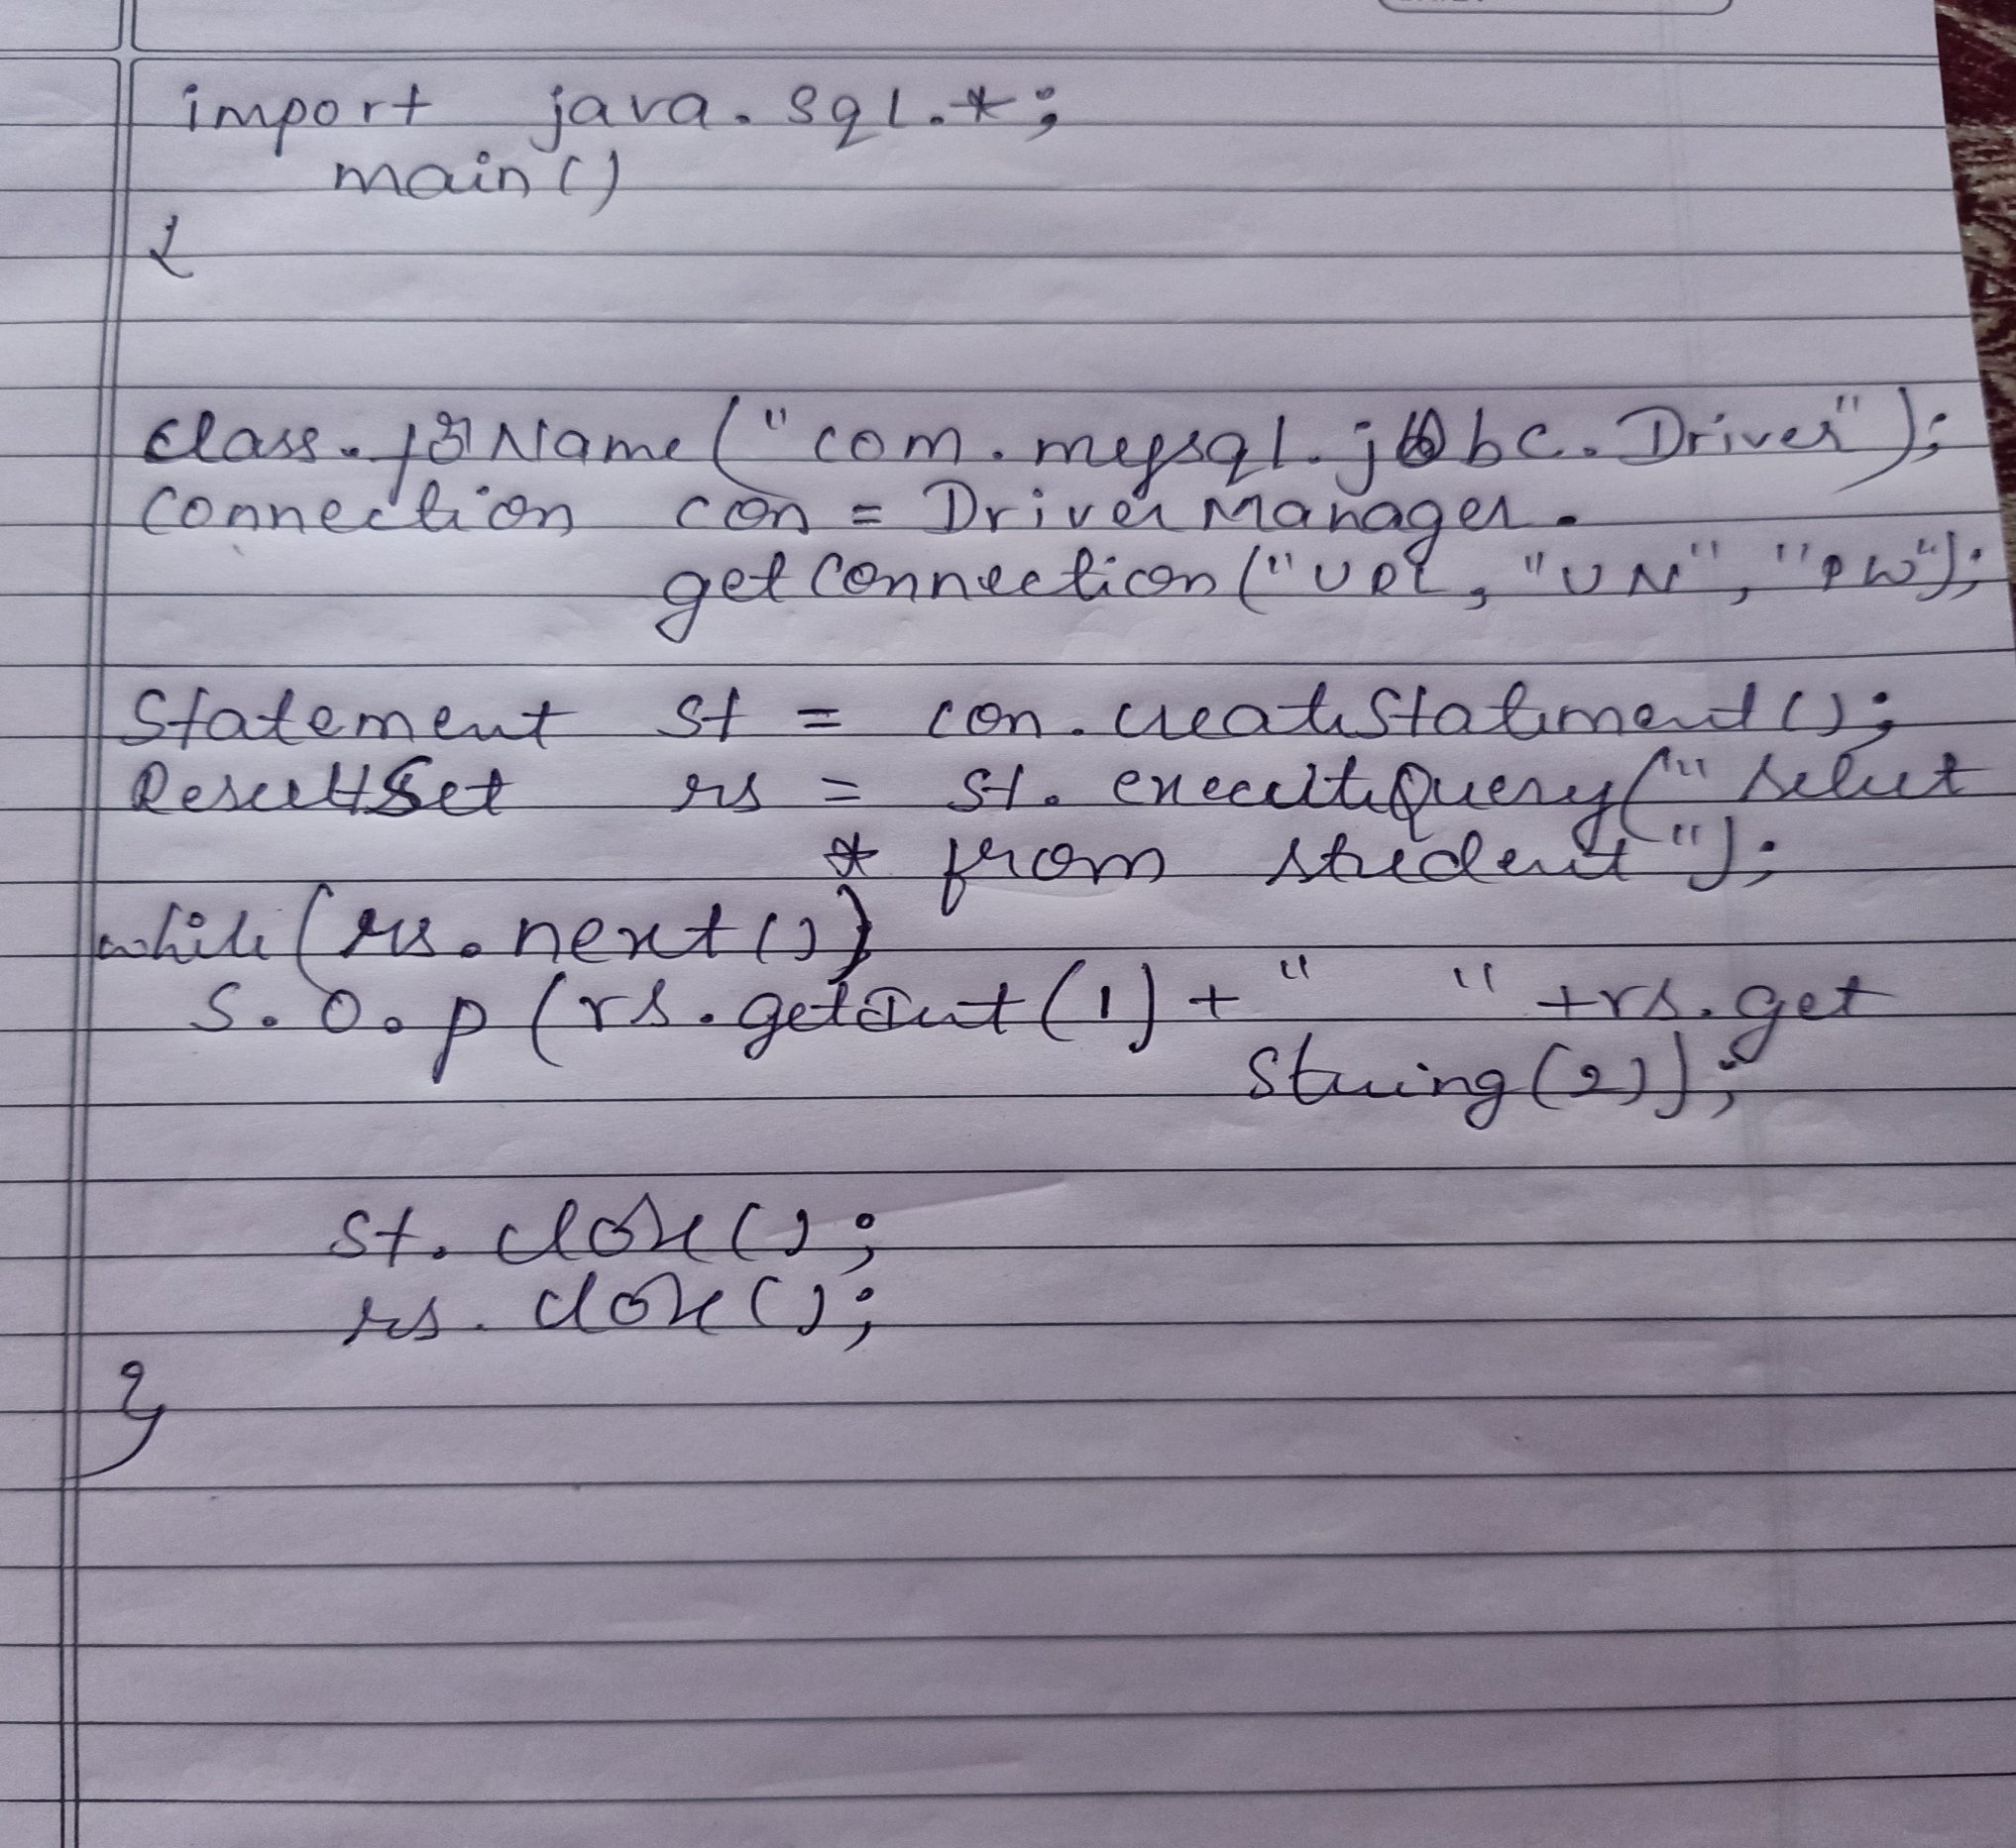 import java.sql.*;
main()
{
class.forName("com.mysql.jdbc.Driver");
Connection con = DriverManager.
getConnection("URL, "UN", "PW");
Statement st = con.createStatement();
ResultSet rs = st.executeQuery("select
* from student");
while(rs.next())
S.O.p(rs.getInt(1)+" "+rs.get
String(2));
st.close();
rs.close();
}